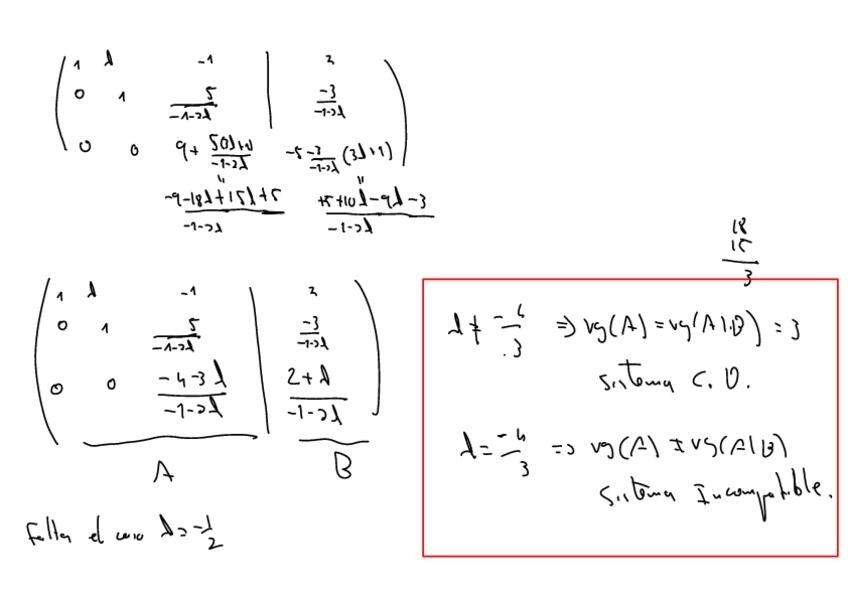 1 λ -1 | 2
0 1 5/(-1-2λ) | -3/(-1-2λ)
0 0 9+ 5(3λ+1)/(-1-2λ) -5 -3/(-1-2λ) (3λ+1)
" "
(-9-18λ+15λ+5)/(-1-2λ) (+5+10λ-9λ-3)/(-1-2λ)
18
15
3
1 λ -1 | 2
0 1 5/(-1-2λ) | -3/(-1-2λ)
0 0 (-4-3λ)/(-1-2λ) | (2+λ)/(-1-2λ)
A B
Falta el caso λ=-1/2
λ ≠ -4/3 => rg(A)=rg(A|B)=3
Sistema C.D.
λ=-4/3 => rg(A)≠rg(A|B)
Sistema Incompatible.